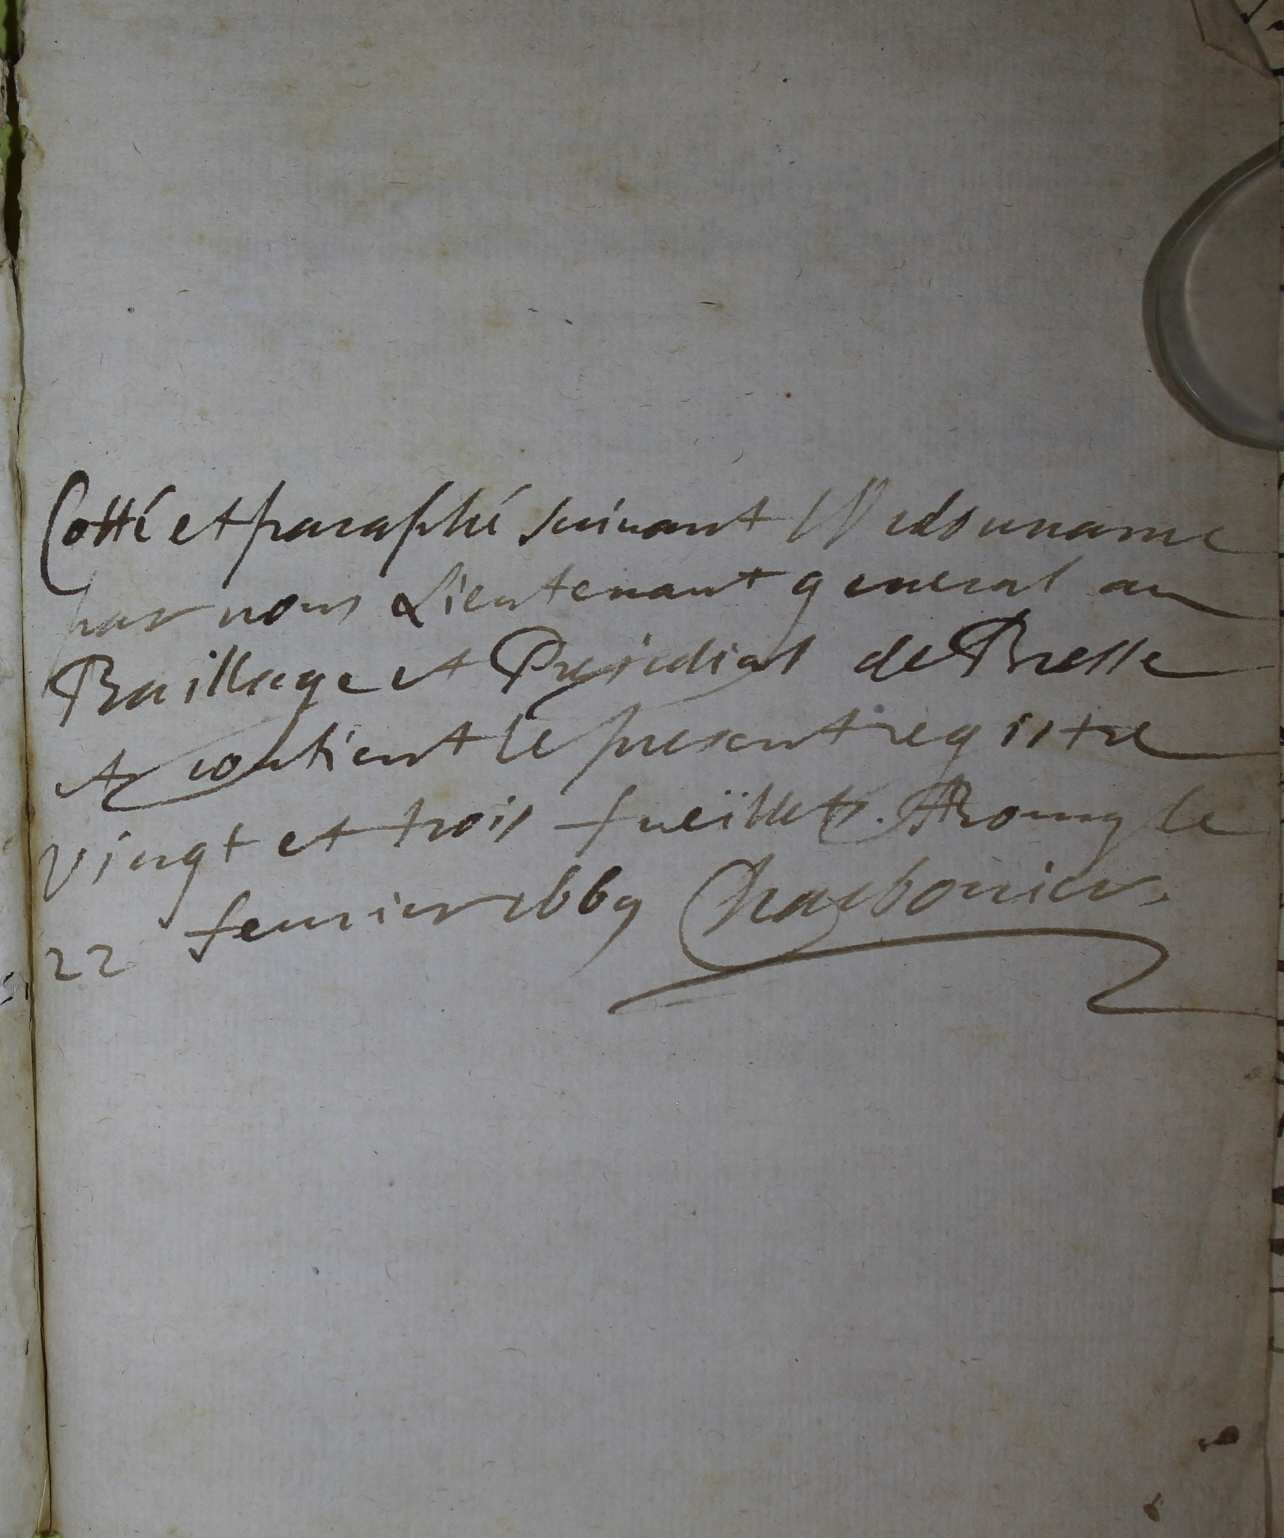 Cotté et paraphé suivant l'ordonnance
par nous Lieutenant general au
Baillage et Presidial de Bresse
et contient le present registre
vingt et trois fueillets. A Bourg le
22 feurier 1669 Charbonier